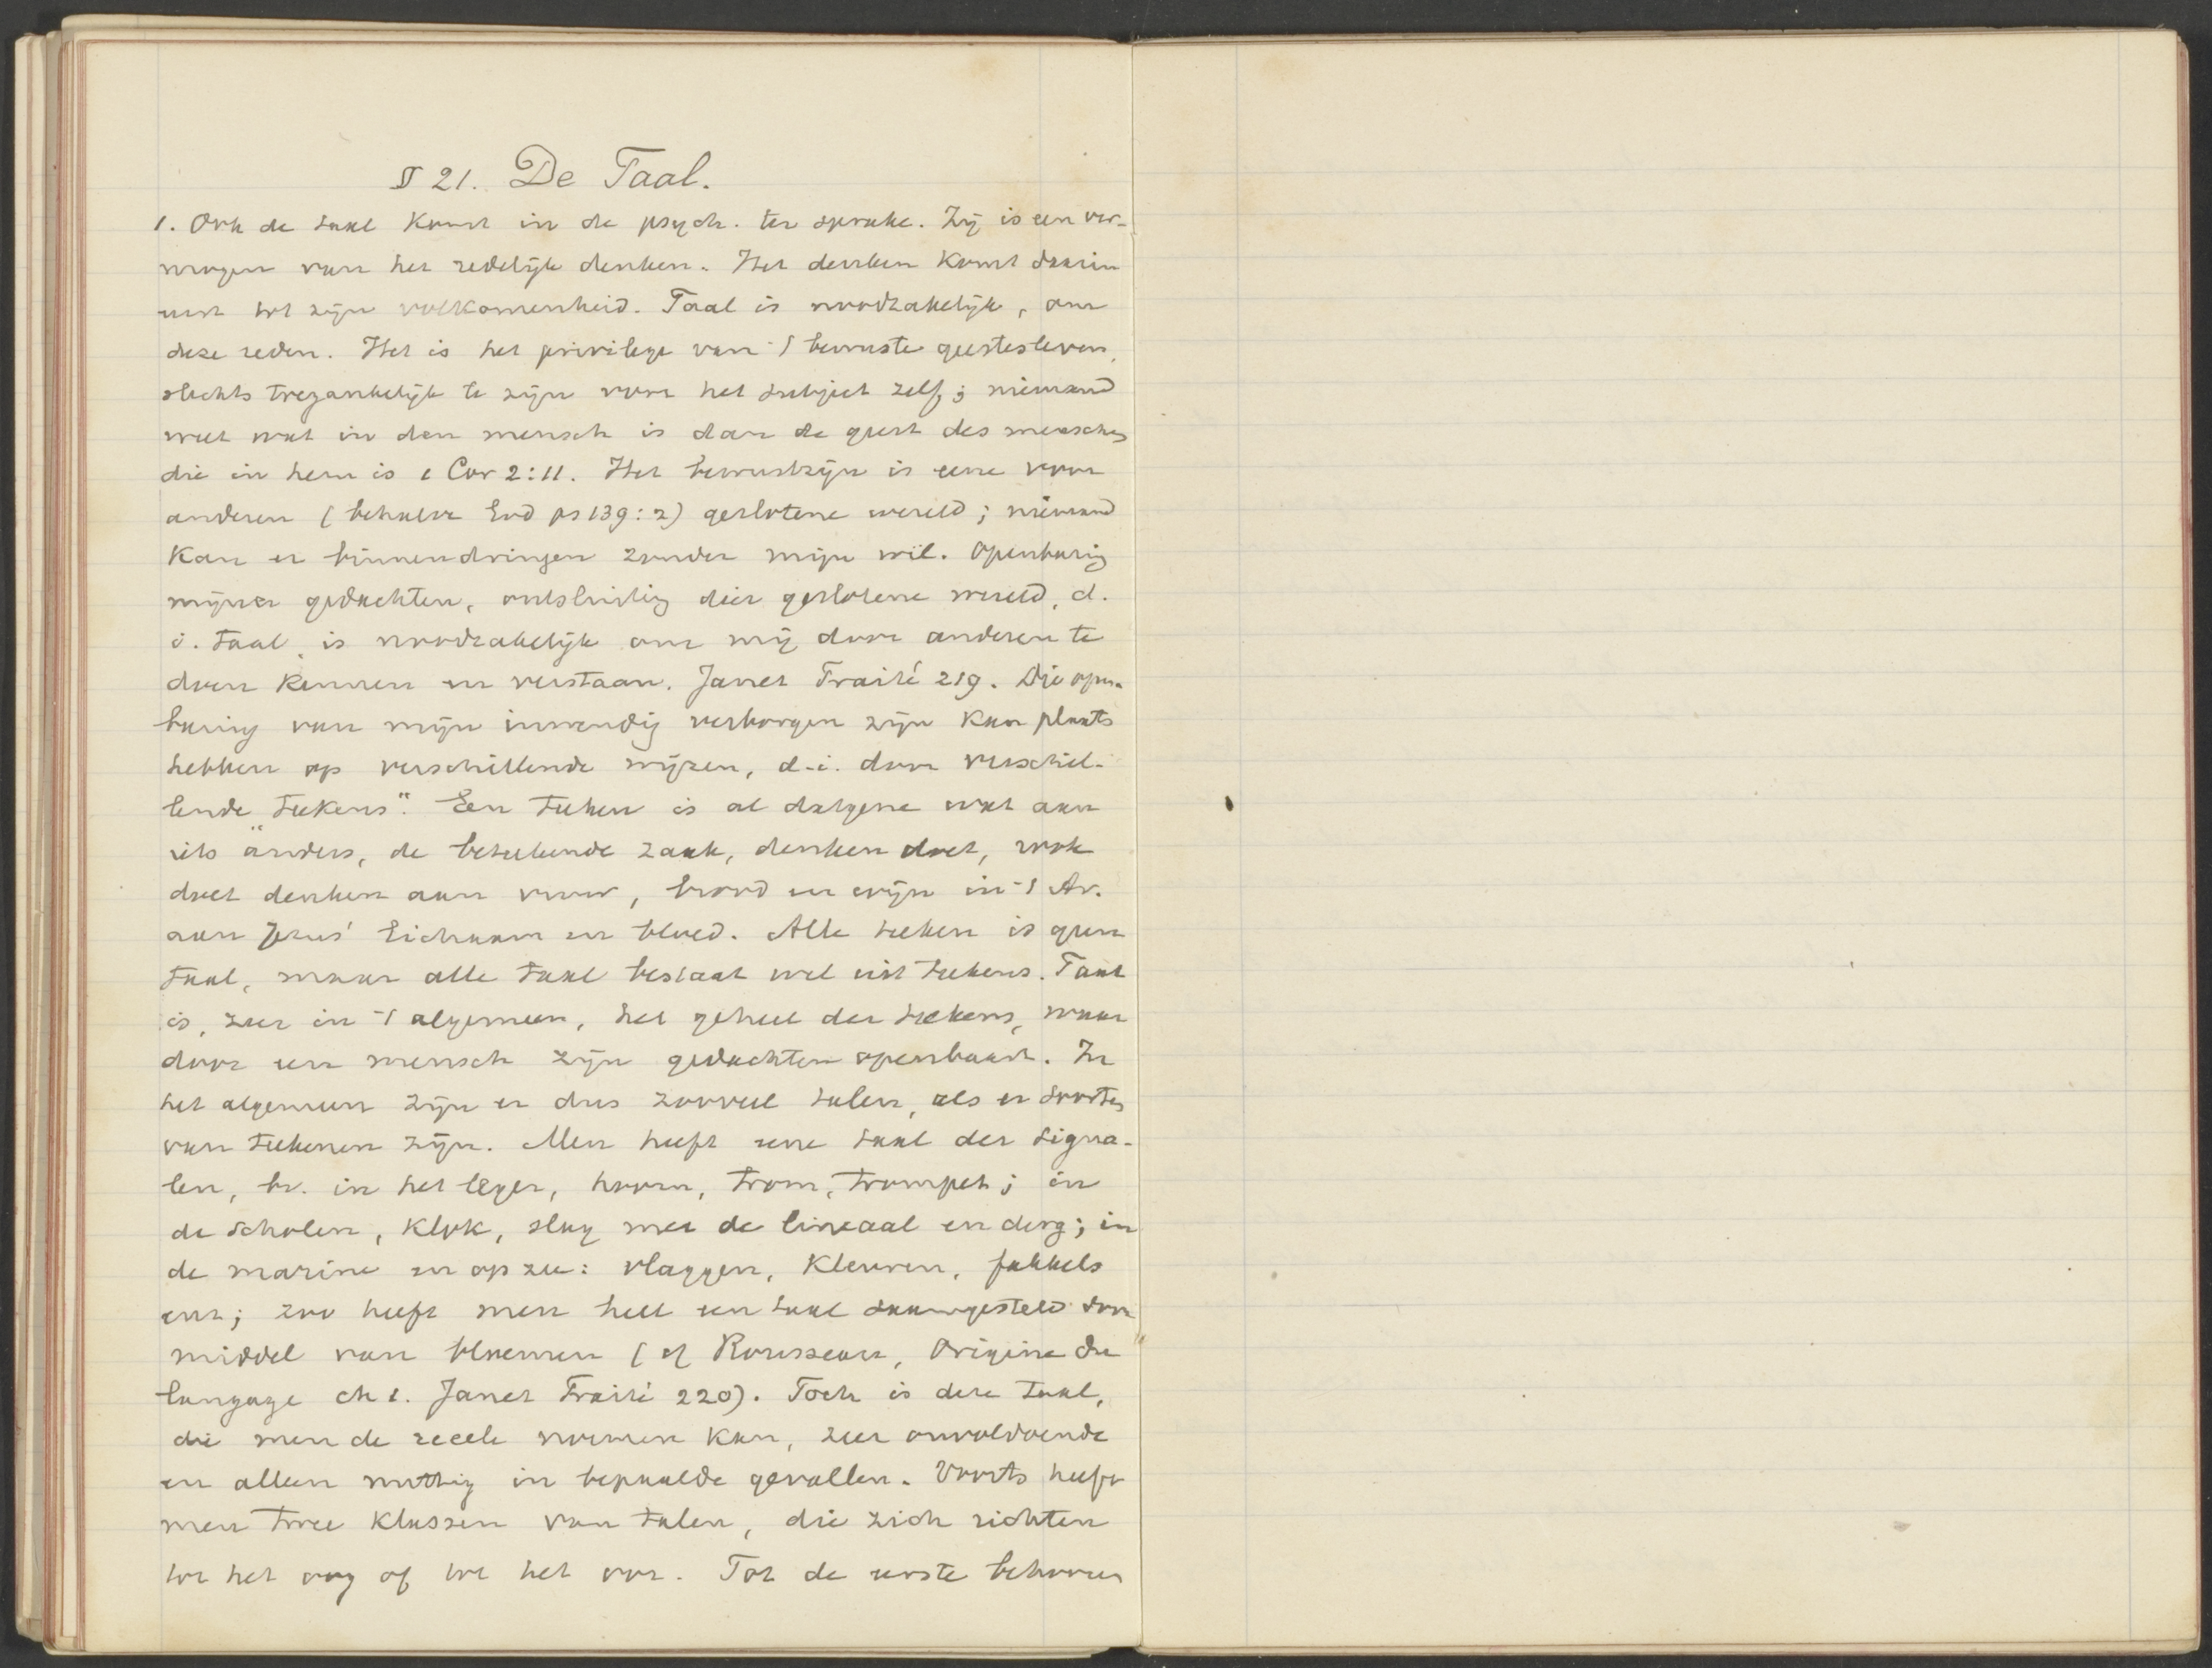 § 21. De Taal.
1. Ook de taal komt in de psych. ter sprake. Zij is een ver-
mogen van het redelijk denken. Het denken komt daarin
eerst tot zijn volkomenheid. Taal is noodzakelijk, om
deze reden. Het is het privilege van 't bewuste geestesleven,
slechts toegankelijk te zijn voor het subject zelf; niemand
weet wat in den mensch is dan de geest des menschen
die in hem is 1 Cor 2:11. Het bewustzijn is eene voor
anderen (behalve God ps 139:2) geslotene wereld; niemand
kan er binnendringen zonder mijn wil. Openbaring
mijner gedachten, ontsluiting dier geslotene wereld, d.
i. taal, is noodzakelijk om mij door anderen te
doen kennen en verstaan. Janet Traité 219. Die open-
baring van mijn inwendig verborgen zijn kan plaats
hebben op verschillende wijzen, d.i. door verschil-
lende „teekens". Een teeken is al datgene wat aan
iets anders, de beteekende zaak, denken doet, rook
doet denken aan vuur, brood en wijn in 't Av.
aan Jezus' lichaam en bloed. Alle teeken is geen
taal, maar alle taal bestaat wel uit teekens. Taal
is, zeer in 't algemeen, het geheel der teekens, waar
door een mensch zijn gedachten openbaart. In
het algemeen zijn er dus zooveel talen, als er soorten
van teekenen zijn. Men heeft eene taal der signa-
len, bv. in het leger, hoorn, trom, trompet; in
de scholen, klok, slag met de lineaal en derg; in
de marine en op zee: vlaggen, kleuren, fakkels
enz; zoo heeft men heel een taal saamgesteld door
middel van bloemen (cf Rousseau, Origine du
langage ch 1. Janet Traité 220). Toch is deze taal,
die men de reeele noemen kan, zeer onvoldoende
en alleen nuttig in bepaalde gevallen. Voorts heeft
men twee klassen van talen, die zich richten
tot het oog of tot het oor. Tot de eerste behooren